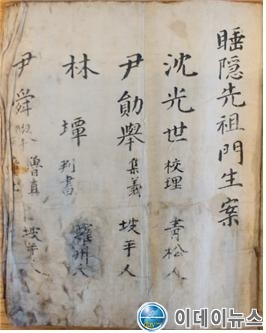 睡隐先祖門生案
沈光世 校理 青松人
尹勛擧 集義 坡平人
林墰 判書 羅州人
尹舜擧 魯直 坡平人
이데이뉴스